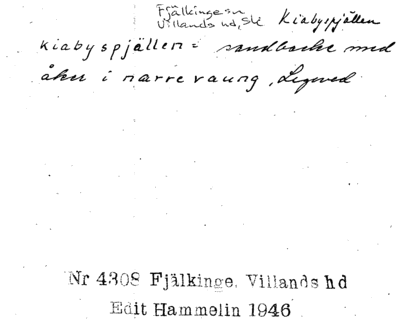 Fjälkinge sn
Villands hd, Sk
Kiabyspjällen
kiabyspjällen = sandbacke med
åker i narrevaung, Legeved
Nr 4308 Fjälkinge. Villands hd
Edit Hammelin 1946